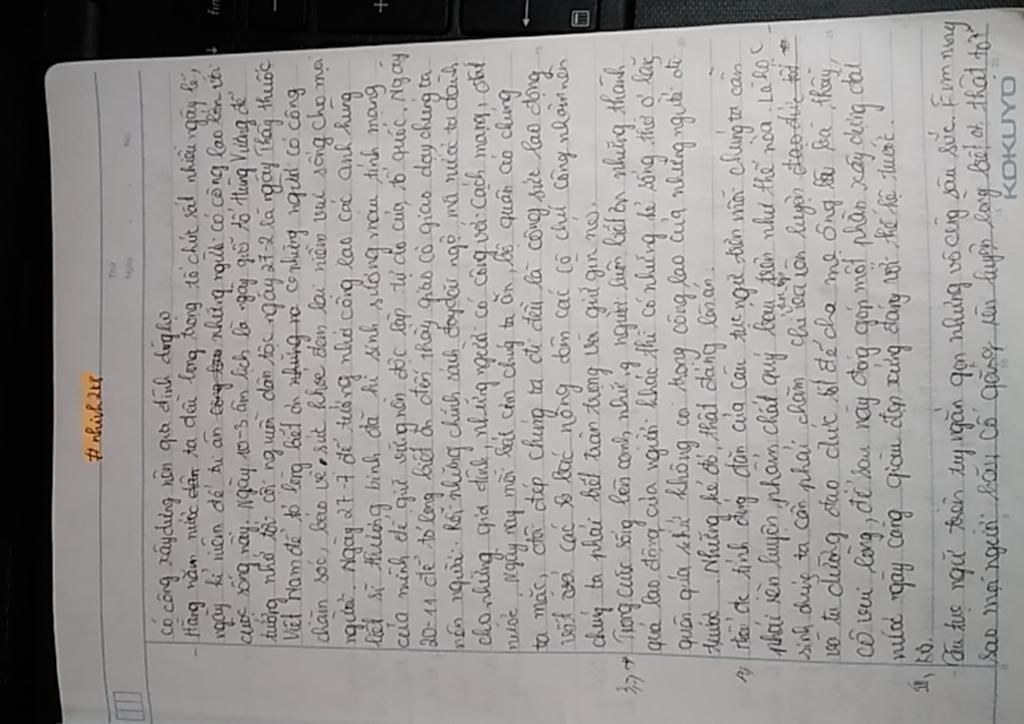 #nhinh2k8
Thứ
Ngày
No.
có công xây dựng nên gia đình dòng họ
- Hằng năm nước ta đều long trọng tổ chức rất nhiều ngày lễ,
ngày kỉ niệm để tri ân những người có công lao lớn với
cuộc sống này. Ngày 10-3 âm lịch là ngày giỗ tổ Hùng Vương để
tưởng nhớ tới cội nguồn dân tộc ngày 27-2 là ngày Thầy thuốc
Việt Nam để tỏ lòng biết ơn những người có công
chăm sóc, bảo vệ sức khỏe đem lại niềm vui sống cho mọi
người. Ngày 27-7 để tưởng nhớ công lao các anh hùng
liệt sĩ thương binh đã hi sinh xương máu tính mạng
của mình để giữ vững nền độc lập tự do của tổ quốc. Ngày
20-11 để tỏ lòng biết ơn đến thầy giáo cô giáo dạy chúng ta
nên người. Rồi những chính sách đãi ngộ mà nước ta dành
cho những gia đình, những người có công với Cách mạng, đất
nước. Ngày nay mỗi bát cơm chúng ta ăn, bộ quần áo chúng
ta mặc, đôi dép chúng ta đi đều là công sức lao động
vất vả của các bác nông dân các cô chú công nhân nên
chúng ta phải biết trân trọng và giữ gìn nó.
Trong cuộc sống bên cạnh những người luôn biết ơn những thành
quả lao động của người khác thì có những kẻ sống thờ ơ lãng
quên quá khứ không coi trọng công lao của những người đi
trước. Những kẻ đó thật đáng lên án.
Từ tính đúng đắn của câu tục ngữ trên mỗi chúng ta cần
phải rèn luyện phẩm chất quý báu trên như thế nào. Là học
sinh chúng ta cần phải chăm chỉ rèn luyện
và tu dưỡng đạo đức để cha mẹ ông bà và thầy
cô vui lòng, để sau này đóng góp một phần xây dựng đất
nước ngày càng giàu đẹp xứng đáng với thế hệ trước.
III, kb.
- Câu tục ngữ trên tuy ngắn gọn nhưng vô cùng sâu sắc. Em mong
sao mọi người hãy cố gắng rèn luyện lòng biết ơn thật tốt
KOKUYO